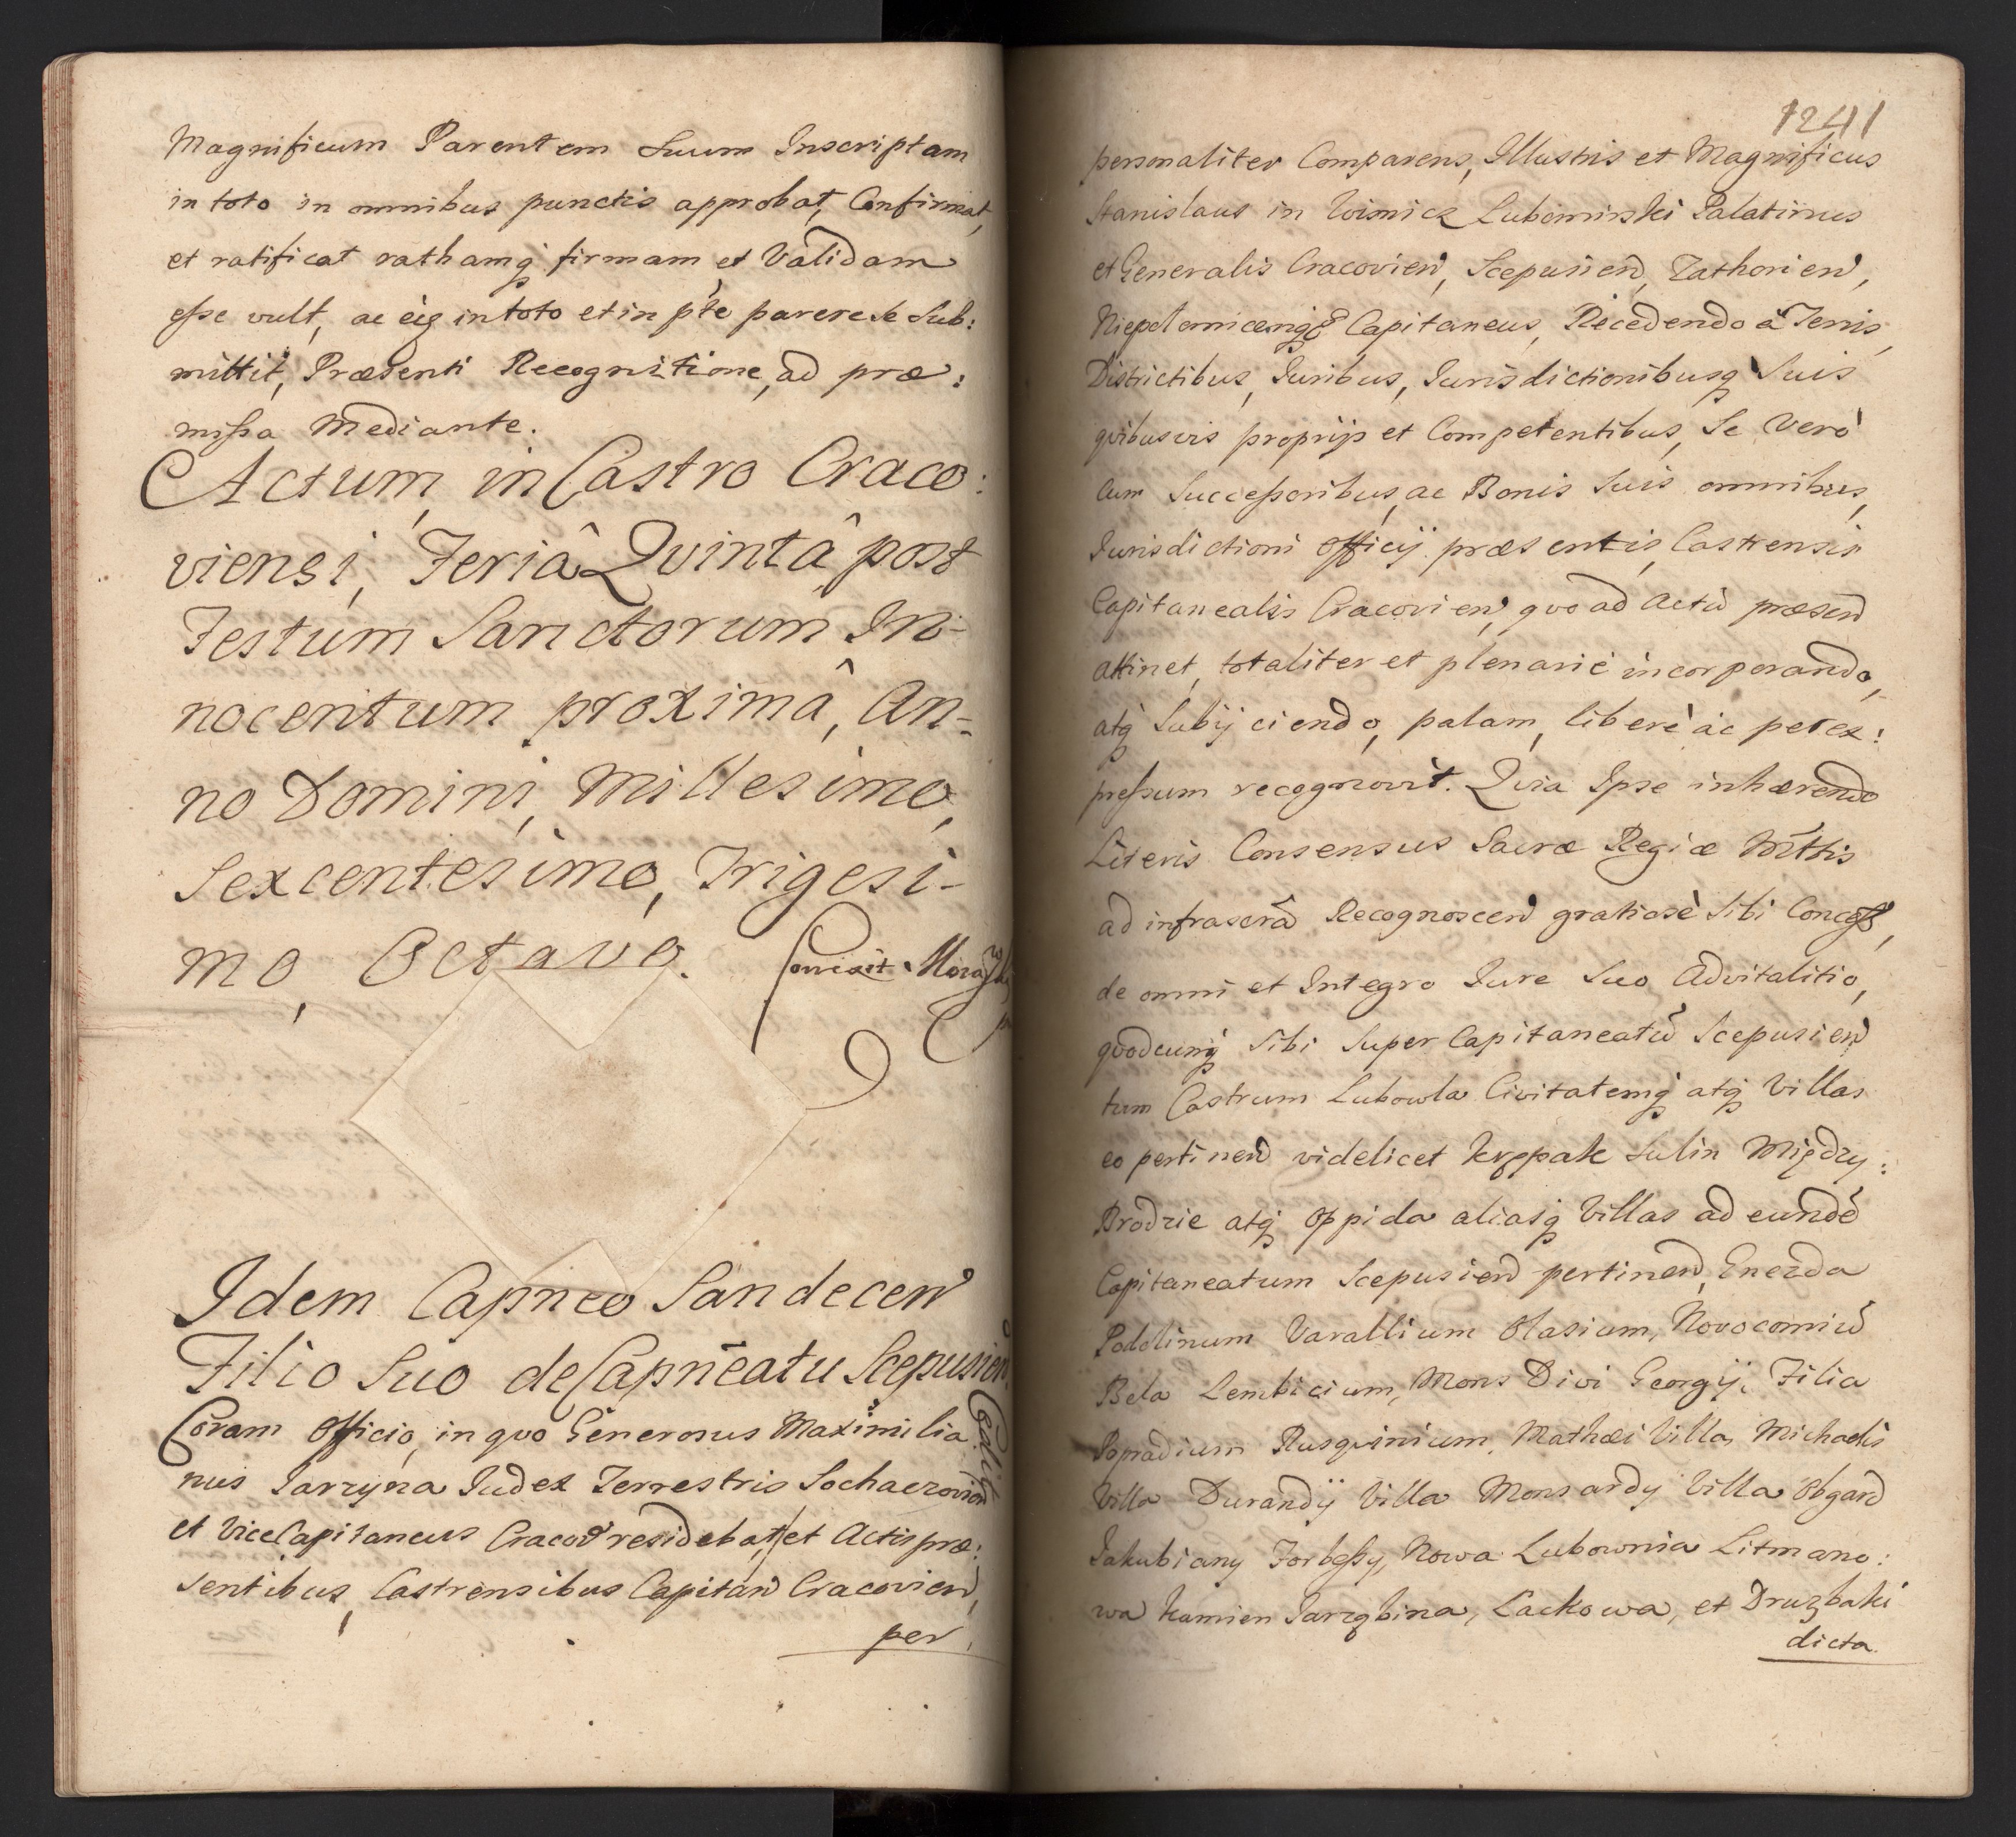 Magnificum Parentem Suum Inscriptam
in toto in omnibus punctis approbat, Confirmat,
et ratificat rathamq firmam et Validam
esse vult, ac eiq in toto et in pte parere se Sub:
mittit, Præsenti Recognitione, ad præ:
missa Mediante.
Actum in Castro Craco:
viensi, Feriâ Qvintâ post
Festum Sanctorum In-
nocentum proximâ, An-
no Domini, Millesimo,
Sexcentesimo, Trigesi-
mo, Octavo.
Idem Capneo Sandecen
Filio Suo de Capneatu Scepusien.
Coram Officio, in qvo Generosus Maximilia
nus Jarzyna Judex Terrestris Sochaczovien
et ViceCapitaneus Cracov residebat, et Actis præ:
sentibus, Castrensibus Capitan Cracovien,
per,
1241
personaliter Comparens, Illustris et Magnificus
Stanislaus in Wisnicz Lubomirski Palatinus
et Generalis Cracovien, Scepusien, Zathorien,
Niepolomicenqe Capitaneus, Recedendo à Terris,
Districtibus, Juribus, Jurisdictionibusq Suis
qvibusvis proprijs et Competentibus, Se Verò
cum Successoribus, ac Bonis Suis omnibus,
Jurisdictioni Officij præsentis, Castrensis
Capitanealis Cracovien, qvo ad Actu præsen
attinet, totaliter et plenariè incorporando,
atq Subijciendo, palam, liberè ac per ex:
pressum recognovit. Qvia Ipse inhærendo
Literis Consensus Sacræ Regiæ Mttis
ad infrascra Recognoscen gratiosè Sibi Concess,
de omni et Integro Jure Suo Advitalitio,
qvodcunq Sibi Super Capitaneatu Scepusien
tum Castrum Lubowla Civitatemq atq Villas
eo pertinen videlicet Krępak Sulin Między:
Brodzie atq Oppida aliasq Villas ad eunde
Capitaneatum Scepusien pertinen, Gnezda
Podolinum Varallium Olasium, Novocomiu
Bela Lembicium, Mons Divi Georgij, Filia
Popradium Rusqvinium, Mathæi Villa, Michaelis
Villa Durandij Villa Mensardy Villa Obgard
Jakubiany Forbessy, Nowa Lubownia Litmano:
wa Kamien Jarzębina, Lackowa, et Druzbaki
dicta.